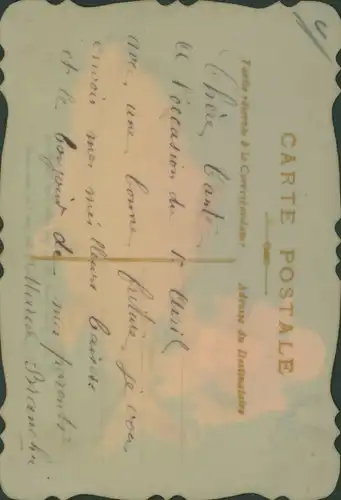 CARTE POSTALE
Partie réservée à la Correspondance
Adresse du Destinataire
Chère Tante,
a l'occasion du 1er Avril
avec une bonne friture je vous
envoie mes meilleurs baisers
et le bonjour de mes parents
Marcel